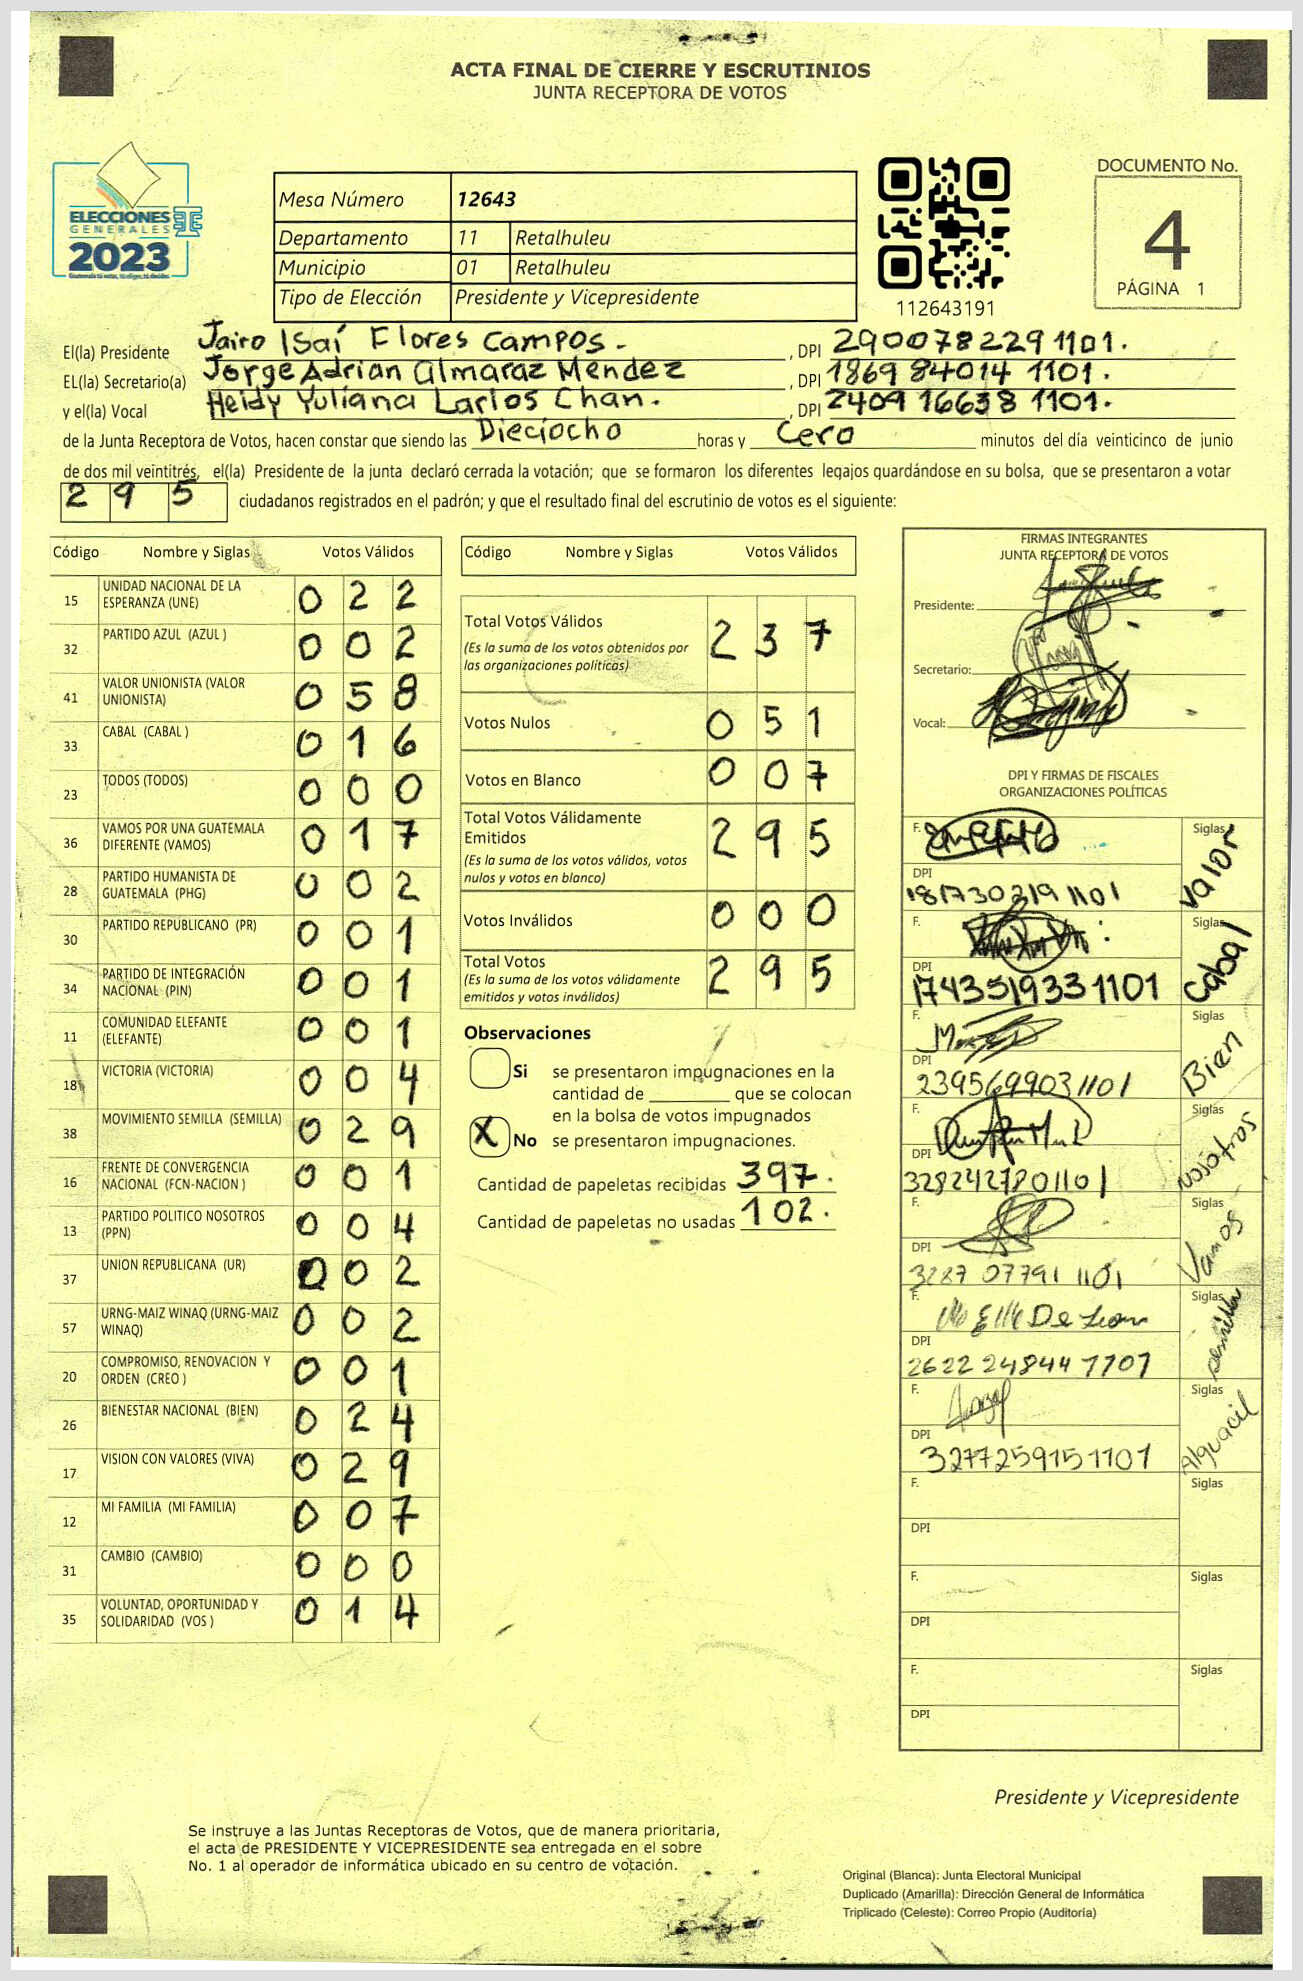 ACTA FINAL DE CIERRE Y ESCRUTINIOS
JUNTA RECEPTORA DE VOTOS
ELECCIONES
GENERALES
2023
Mesa Número 12643
Departamento 11 Retalhuleu
Municipio 01 Retalhuleu
Tipo de Elección Presidente y Vicepresidente
112643191
DOCUMENTO No.
4
PÁGINA 1
El(la) Presidente Jairo Isaí Flores Campos. , DPI 2900782291101.
EL(la) Secretario(a) Jorge Adrian almaraz Méndez , DPI 1869 84014 1101.
y el(la) Vocal Heidy Yuliana Larios Chan. , DPI 2409 16638 1101.
de la Junta Receptora de Votos, hacen constar que siendo las Dieciocho horas y Cero minutos del día veinticinco de junio
de dos mil veintitrés, el(la) Presidente de la junta declaró cerrada la votación; que se formaron los diferentes legajos quardándose en su bolsa, que se presentaron a votar
295 ciudadanos registrados en el padrón; y que el resultado final del escrutinio de votos es el siguiente:
Código Nombre y Siglas Votos Válidos
15 UNIDAD NACIONAL DE LA ESPERANZA (UNE) 0 2 2
32 PARTIDO AZUL (AZUL ) 0 0 2
41 VALOR UNIONISTA (VALOR UNIONISTA) 0 5 8
33 CABAL (CABAL ) 0 1 6
23 TODOS (TODOS) 0 0 0
36 VAMOS POR UNA GUATEMALA DIFERENTE (VAMOS) 0 1 7
28 PARTIDO HUMANISTA DE GUATEMALA (PHG) 0 0 2
30 PARTIDO REPUBLICANO (PR) 0 0 1
34 PARTIDO DE INTEGRACIÓN NACIONAL (PIN) 0 0 1
11 COMUNIDAD ELEFANTE (ELEFANTE) 0 0 1
18 VICTORIA (VICTORIA) 0 0 4
38 MOVIMIENTO SEMILLA (SEMILLA) 0 2 9
16 FRENTE DE CONVERGENCIA NACIONAL (FCN-NACION ) 0 0 1
13 PARTIDO POLITICO NOSOTROS (PPN) 0 0 4
37 UNION REPUBLICANA (UR) 0 0 2
57 URNG-MAIZ WINAQ (URNG-MAIZ WINAQ) 0 0 2
20 COMPROMISO, RENOVACION Y ORDEN (CREO ) 0 0 1
26 BIENESTAR NACIONAL (BIEN) 0 2 4
17 VISION CON VALORES (VIVA) 0 2 9
12 MI FAMILIA (MI FAMILIA) 0 0 7
31 CAMBIO (CAMBIO) 0 0 0
35 VOLUNTAD, OPORTUNIDAD Y SOLIDARIDAD (VOS ) 0 1 4
Código Nombre y Siglas Votos Válidos
Total Votos Válidos 2 3 7
(Es la suma de los votos obtenidos por
las organizaciones políticas)
Votos Nulos 0 5 1
Votos en Blanco 0 0 7
Total Votos Válidamente
Emitidos 2 9 5
(Es la suma de los votos válidos, votos
nulos y votos en blanco)
Votos Inválidos 0 0 0
Total Votos 2 9 5
(Es la suma de los votos válidamente
emitidos y votos inválidos)
Observaciones
Si se presentaron impugnaciones en la
cantidad de ________ que se colocan
en la bolsa de votos impugnados
X No se presentaron impugnaciones.
Cantidad de papeletas recibidas 397.
Cantidad de papeletas no usadas 102.
FIRMAS INTEGRANTES
JUNTA RECEPTORA DE VOTOS
Presidente:
Secretario:
Vocal:
DPI Y FIRMAS DE FISCALES
ORGANIZACIONES POLÍTICAS
F. Siglas Valor
DPI 181730219 1101
F. Siglas Cabal
DPI 1743519331101
F. Siglas Bien
DPI 2395699031101
F. Siglas Nosotros
DPI 3282427801101
F. Siglas Vamos
DPI 3287 07791 1101
F. De León Siglas semilla
DPI 2622 24844 1101
F. Siglas Alguacil
DPI 3277259151101
F. Siglas
DPI
F. Siglas
DPI
F. Siglas
DPI
Presidente y Vicepresidente
Se instruye a las Juntas Receptoras de Votos, que de manera prioritaria,
el acta de PRESIDENTE Y VICEPRESIDENTE sea entregada en el sobre
No. 1 al operador de informática ubicado en su centro de votación.
Original (Blanca): Junta Electoral Municipal
Duplicado (Amarilla): Dirección General de Informática
Triplicado (Celeste): Correo Propio (Auditoría)